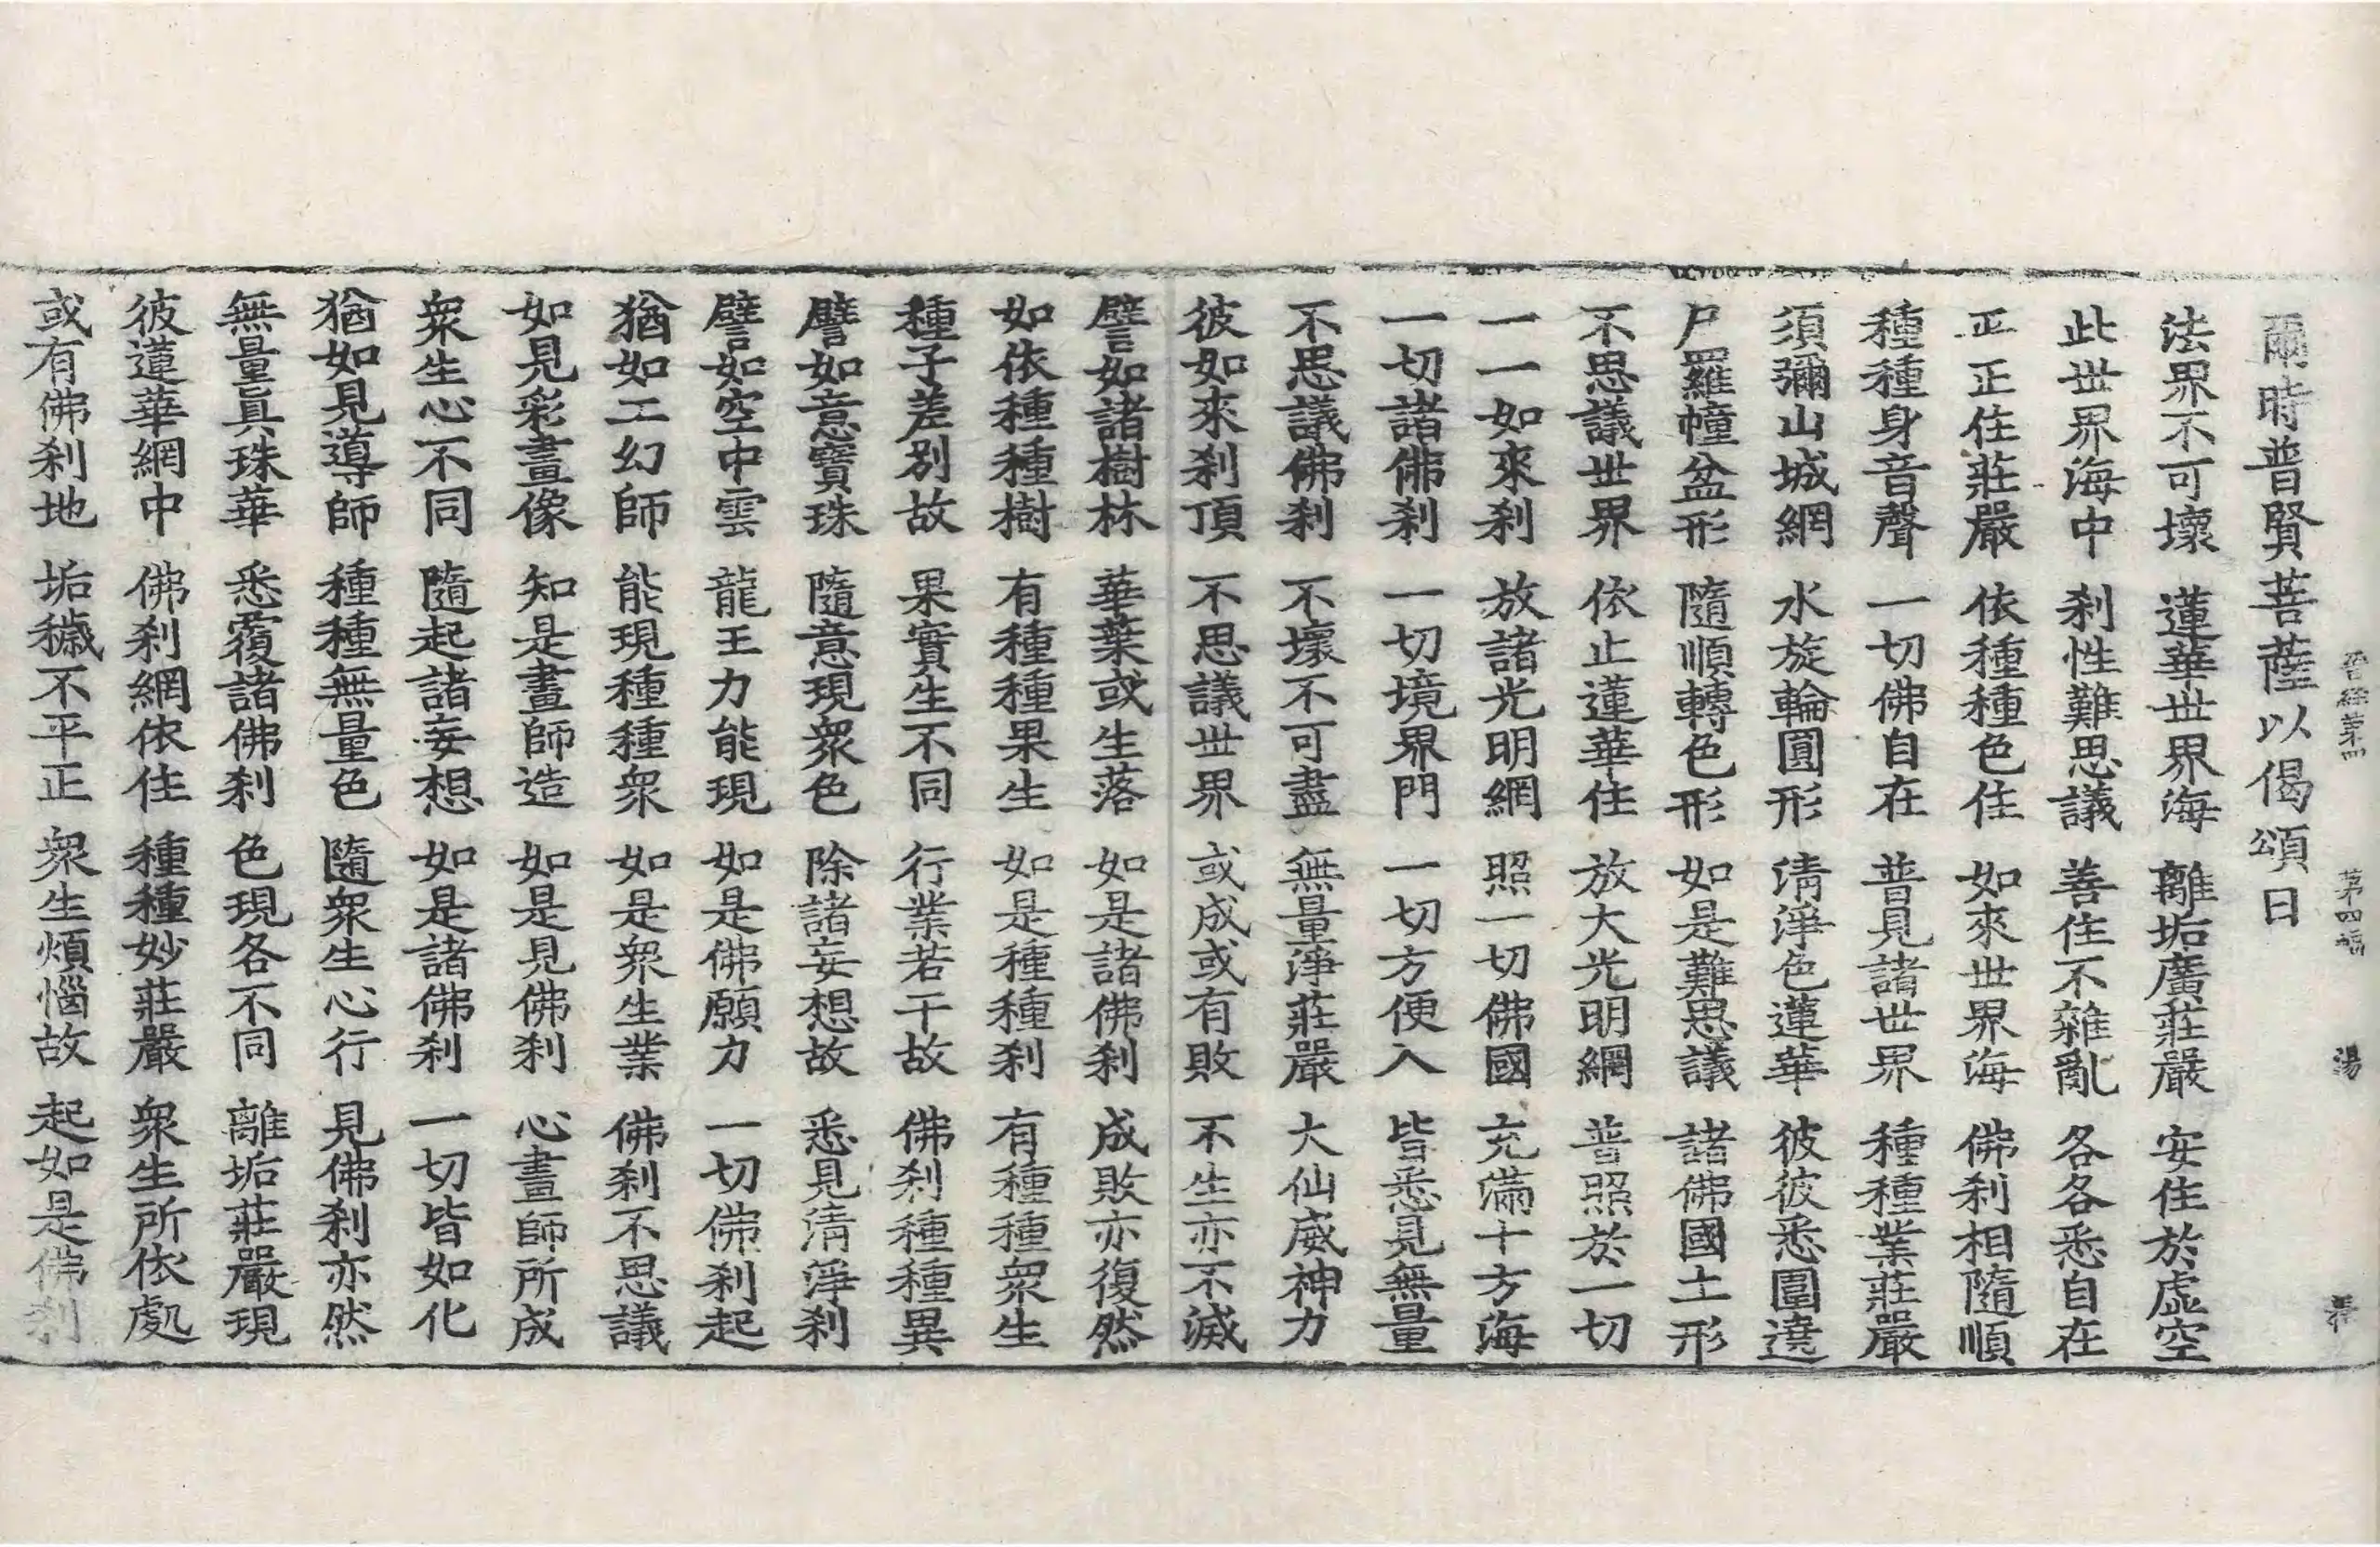 晉經第四 第四幅 湯
爾時普賢菩薩以偈頌曰
法界不可壞 蓮華世界海 離垢廣莊嚴 安住於虛空
此世界海中 刹性難思議 善住不雜亂 各各悉自在
正正住莊嚴 依種種色住 如來世界海 佛刹相隨順
種種身音聲 一切佛自在 普見諸世界 種種業莊嚴
須彌山城網 水旋輪圓形 清淨色蓮華 彼彼悉圍遶
尸羅幢盆形 隨順轉色形 如是難思議 諸佛國土形
不思議世界 依止蓮華住 放大光明網 普照於一切
一一如來刹 放諸光明網 照一切佛國 充滿十方海
一切諸佛刹 一切境界門 一切方便入 皆悉見無量
不思議佛刹 不壞不可盡 無量淨莊嚴 大仙威神力
彼如來刹頂 不思議世界 或成或有敗 不生亦不滅
譬如諸樹林 華葉或生落 如是諸佛刹 成敗亦復然
如依種種樹 有種種果生 如是種種刹 有種種衆生
種子差別故 果實生不同 行業若干故 佛刹種種異
譬如意寶珠 隨意現衆色 除諸妄想故 悉見清淨刹
譬如空中雲 龍王力能現 如是佛願力 一切佛刹起
猶如工幻師 能現種種衆 如是衆生業 佛刹不思議
如見彩畫像 知是畫師造 如是見佛刹 心畫師所成
衆生心不同 隨起諸妄想 如是諸佛刹 一切皆如化
猶如見導師 種種無量色 隨衆生心行 見佛刹亦然
無量眞珠華 悉覆諸佛刹 色現各不同 離垢莊嚴現
彼蓮華網中 佛刹網依住 種種妙莊嚴 衆生所依處
或有佛刹地 垢穢不平正 衆生煩惱故 起如是佛刹